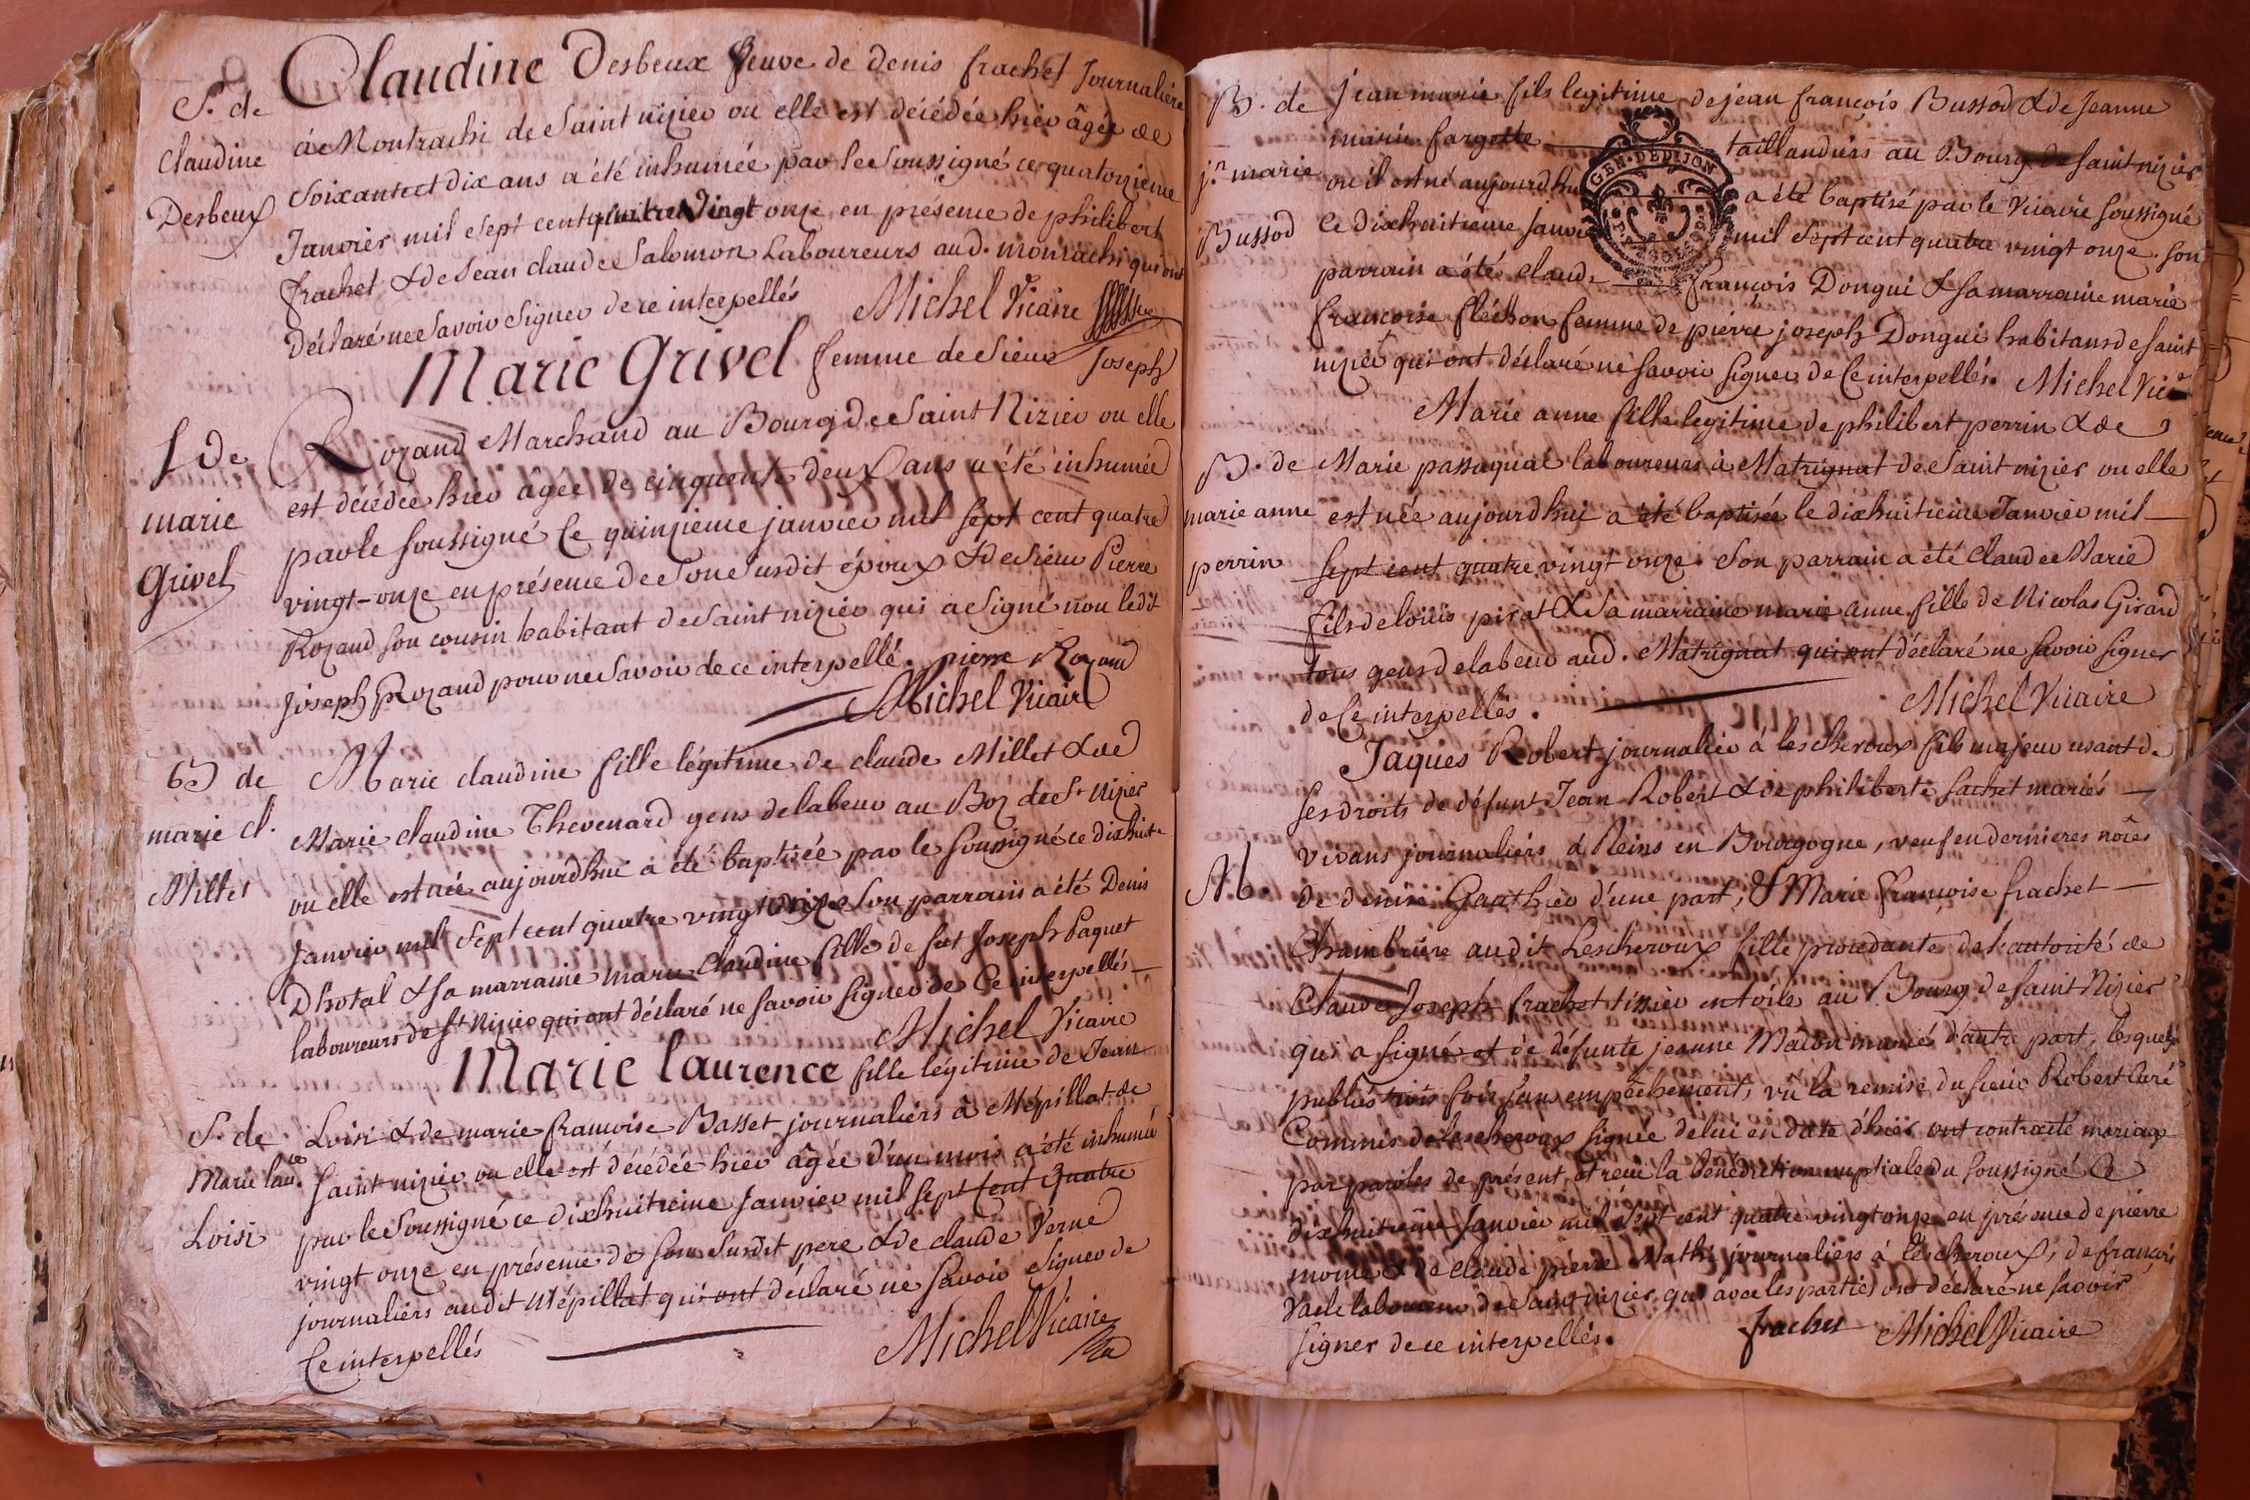 S. de
Claudine
Desbeux
Claudine Desbeux veuve de denis frachet Journaliere
à Montrachi de Saint nizier ou elle est décédée hier âgée de
Soixante et dix ans a été inhumée par le Soussigné ce quatorzieme
Janvier mil Sept cent quatre Vingt onze en présence de philibert
frachet & de Jean claude Salomon Laboureurs aud. montrachi qui ont
déclaré ne Savoir Signer de ce interpellés Michel Vicaire
S de
marie
Grivel
Marie Grivel femme de Sieur Joseph
Rozand Marchand au Bourg de Saint Nizier ou elle
est décédée hier âgée de cinquente deux ans a été inhumée
par le Soussigné Ce quinzieme janvier mil Sept cent quatre
vingt-onze en présence de Son Susdit époux & de Sieur Pierre
Rozand Son cousin habitant de Saint nizier qui a Signé non ledit
Joseph Rozand pour ne Savoir de ce interpellé. pierre Rozand
Michel Vicaire
B de
marie cl.
Millet
Marie claudine fille légitime de claude Millet & de
Marie claudine Thevenard gens de labeur au Boz de St Nizier
ou elle est née aujourdhui a été baptisée par le Soussigné ce dixhuit
Janvier mil Sept cent quatre vingt onze Son parrain a été Denis
Dhotal & Sa marraine marie Claudine fille de fut Joseph Paquet
laboureurs de St Nizier qui ont déclaré ne Savoir Signer de Ce interpellés
Michel Vicaire
S. de
Marie lau.ce
Loisi
Marie laurence fille légitime de Jean
Loisi & de marie francoise Basset journaliers à Mépillat de
Saint nizier ou elle est décédée hier âgée d'un mois a été inhumée
par le Soussigné ce dixhuitieme Janvier mil Sept Cent Quatre
vingt onze en présence de Son Susdit pere & de claude Verne
journaliers audit Mépillat qui ont déclaré ne Savoir Signer de
Ce interpellés
Michel Vicaire
B. de
j.n marie
Bussod
Jean marie fils legitime de jean françois Bussod & de Jeanne
marie fargette taillandiers au Bourg de Saint nizier
ou il est né aujourdhui a été baptisé par le Vicaire Soussigné
Ce dixhuitieme Janvier mil Sept cent quatre vingt onze. Son
parrain a été claude françois Dongui & Sa marraine marie
francoise fléchon femme de pierre joseph Dongui habitans de Saint
nizier qui ont déclaré ne Savoir Signer de Ce interpellés. Michel Vic.e
GEN. DE DIJON
B. de
marie anne
perrin
Marie anne fille legitime de philibert perrin & de
Marie passaquai laboureurs à Matrignat de Saint nizier ou elle
est née aujourdhui a été baptisée le dixhuitieme Janvier mil
Sept cent quatre vingt onze. Son parrain a été claude Marie
fils de loüis pirat & Sa marraine marie anne fille de Nicolas Girard
tous gens de labeur aud. Matrignat qui ont déclaré ne Savoir Signer
de Ce interpellés.
Michel Vicaire
M.
Jaques Robert journalier à lescheroux fils majeur usant de
Ses droits de défunt Jean Robert & de philiberte Sachet mariés
vivans journaliers à Reins en Bourgogne, veuf en dernieres nôces
de denise Gauthier d'une part, & Marie françoise frachet
Chambriere audit Lescheroux fille procedante de l'autorité de
Claude Joseph frachet tissier en toile au Bourg de Saint Nizier
qui a Signé et de défunte jeanne Macon mariés d'autre part, lesquels
publiés trois fois Sans empêchement, vû la remise du Sieur Robert Curé
Commis de Lescheroux Signée de lui en date d'hier ont contracté mariage
par paroles de présent, et reçu la bénédiction nuptiale du Soussigné Ce
dixhuitieme Janvier mil Sept cent quatre vingt onze en présence de pierre
moine & de claude pierre Mathi journaliers à lescheroux, de françois
Vacle laboureur de Saint nizier, qui avec les parties ont déclaré ne Savoir
Signer de ce interpellés. frachet Michel Vicaire